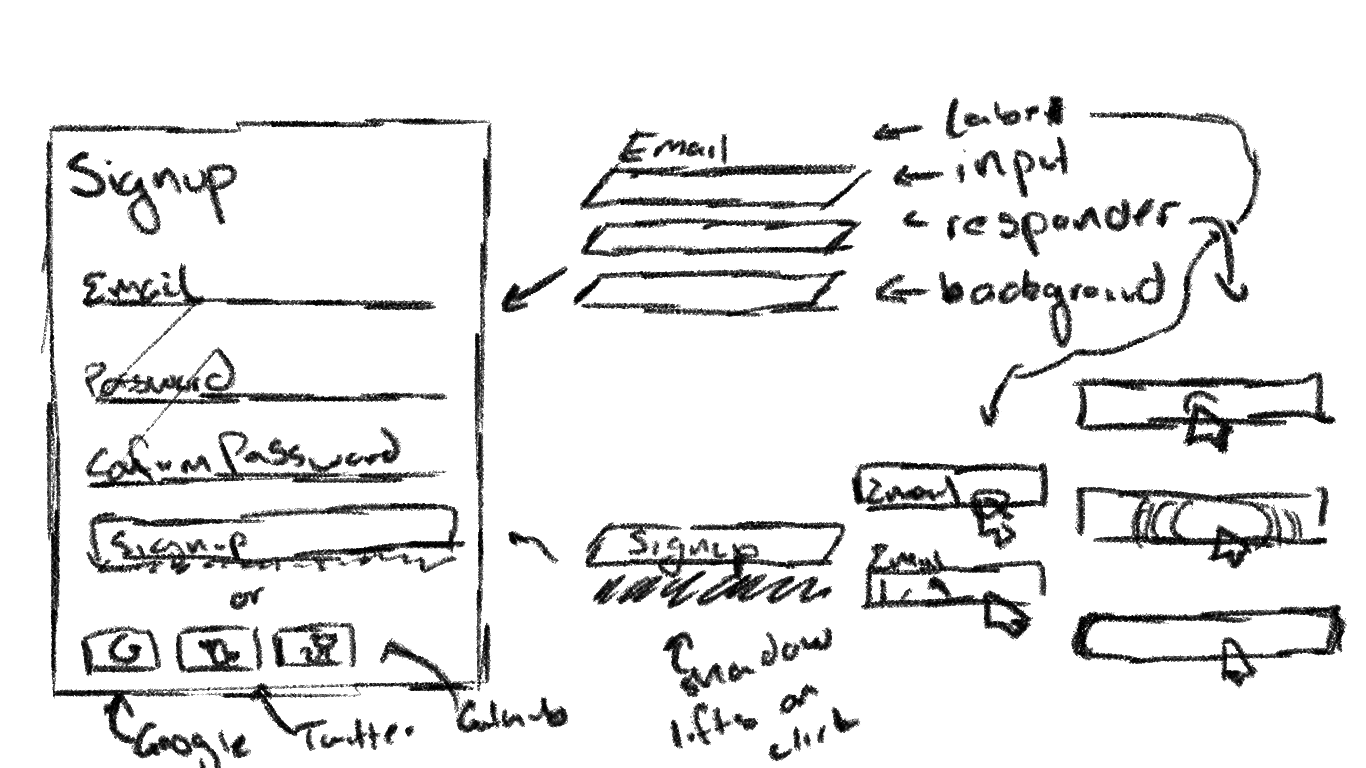 Signup
Email
Password
Confirm Password
Signup
or
G
Google
Twitter
Github
Email
label
input
responder
background
Signup
shadow
lifts on
click
Email
Email